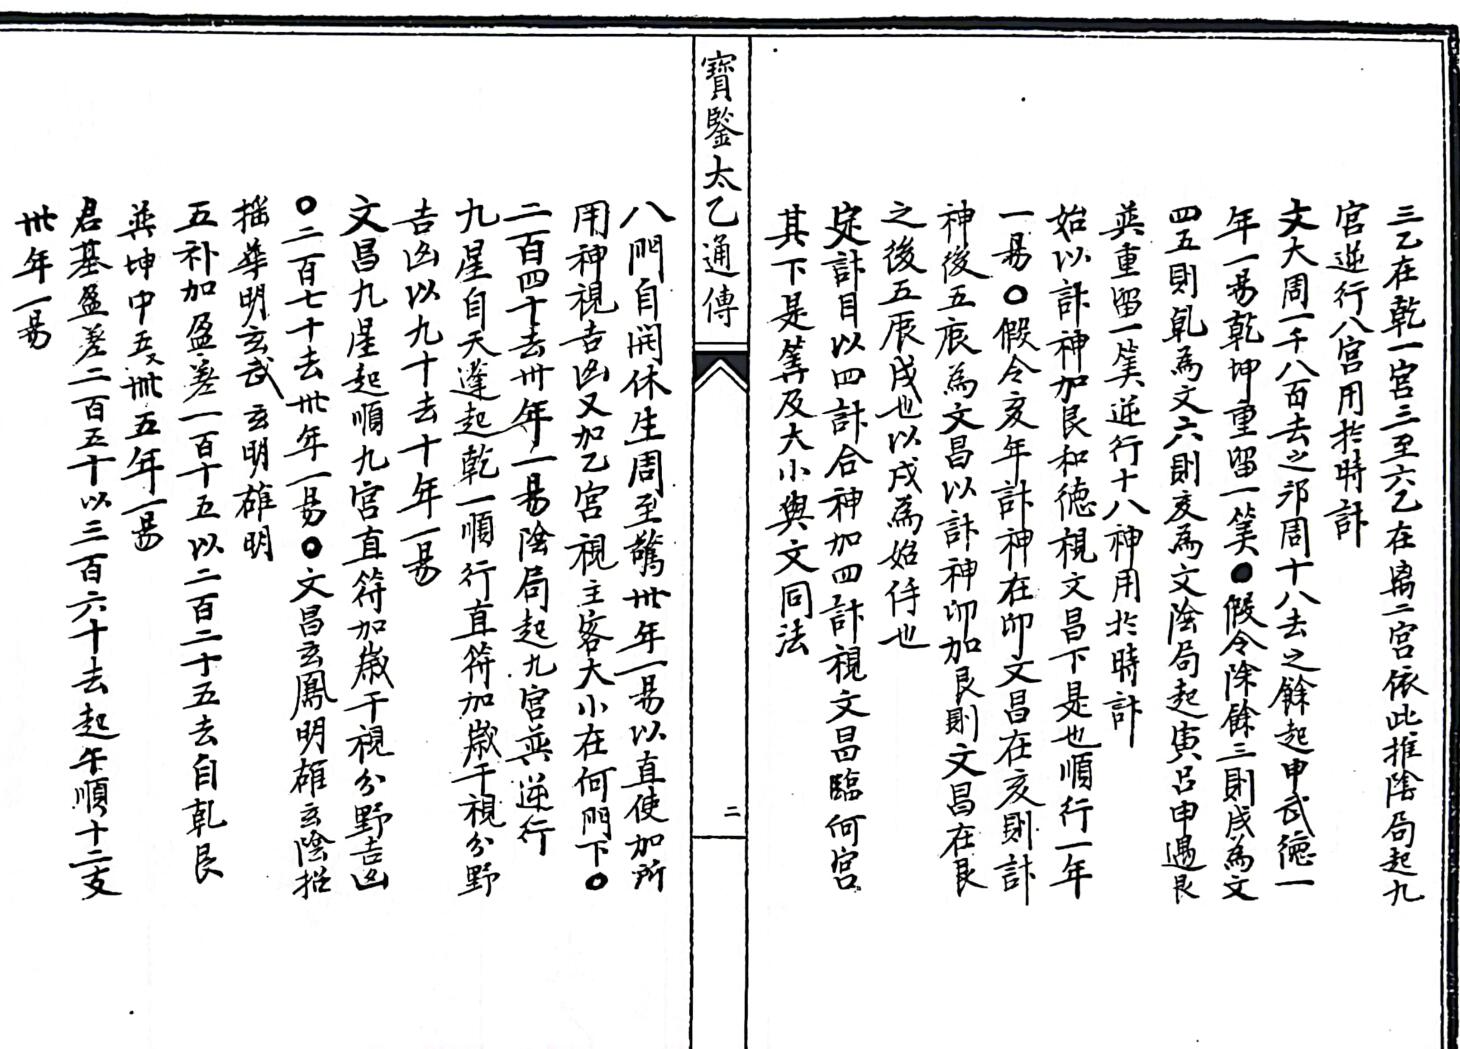 三乙在乾一宮三至六乙在离二宮依此推陰局起九
宮逆行八宮用於時計
文大周一千八百去之邜周十八去之餘起申武德一
年一易乾坤重留一筭●假令除餘三則戌為文
四五則乹為文六則亥為文陰局起寅呂申遇艮
巽重留一筭逆行十八神用於時計
始以計神加艮和德視文昌下是也順行一年
一易○假令亥年計神在邜文昌在亥則計
神後五辰為文昌以計神邜加艮則文昌在艮
之後五辰戌也以戌為始侍也
定計目以四計合神加四計視文昌臨何宮
其下是筭及大小與文同法
寶鑒太乙通傳
二
八門自開休生周至驚卅年一易以直使加所
用神視吉凶又加乙宮視主客大小在何門下○
二百四十去卅年一易陰局起九宮巽逆行
九星自天蓬起乾一順行直符加歲干視分野
吉凶以九十去十年一易
文昌九星起順九宮直符加歲干視分野吉凶
○二百七十去卅年一易○文昌玄鳳明雄玄陰招
摇華明玄武玄明雄明
五补加盈差一百十五以二百二十五去自乹艮
巽坤中五卅五年一易
君基盈差二百五十以三百六十去起午順十二支
卅年一易